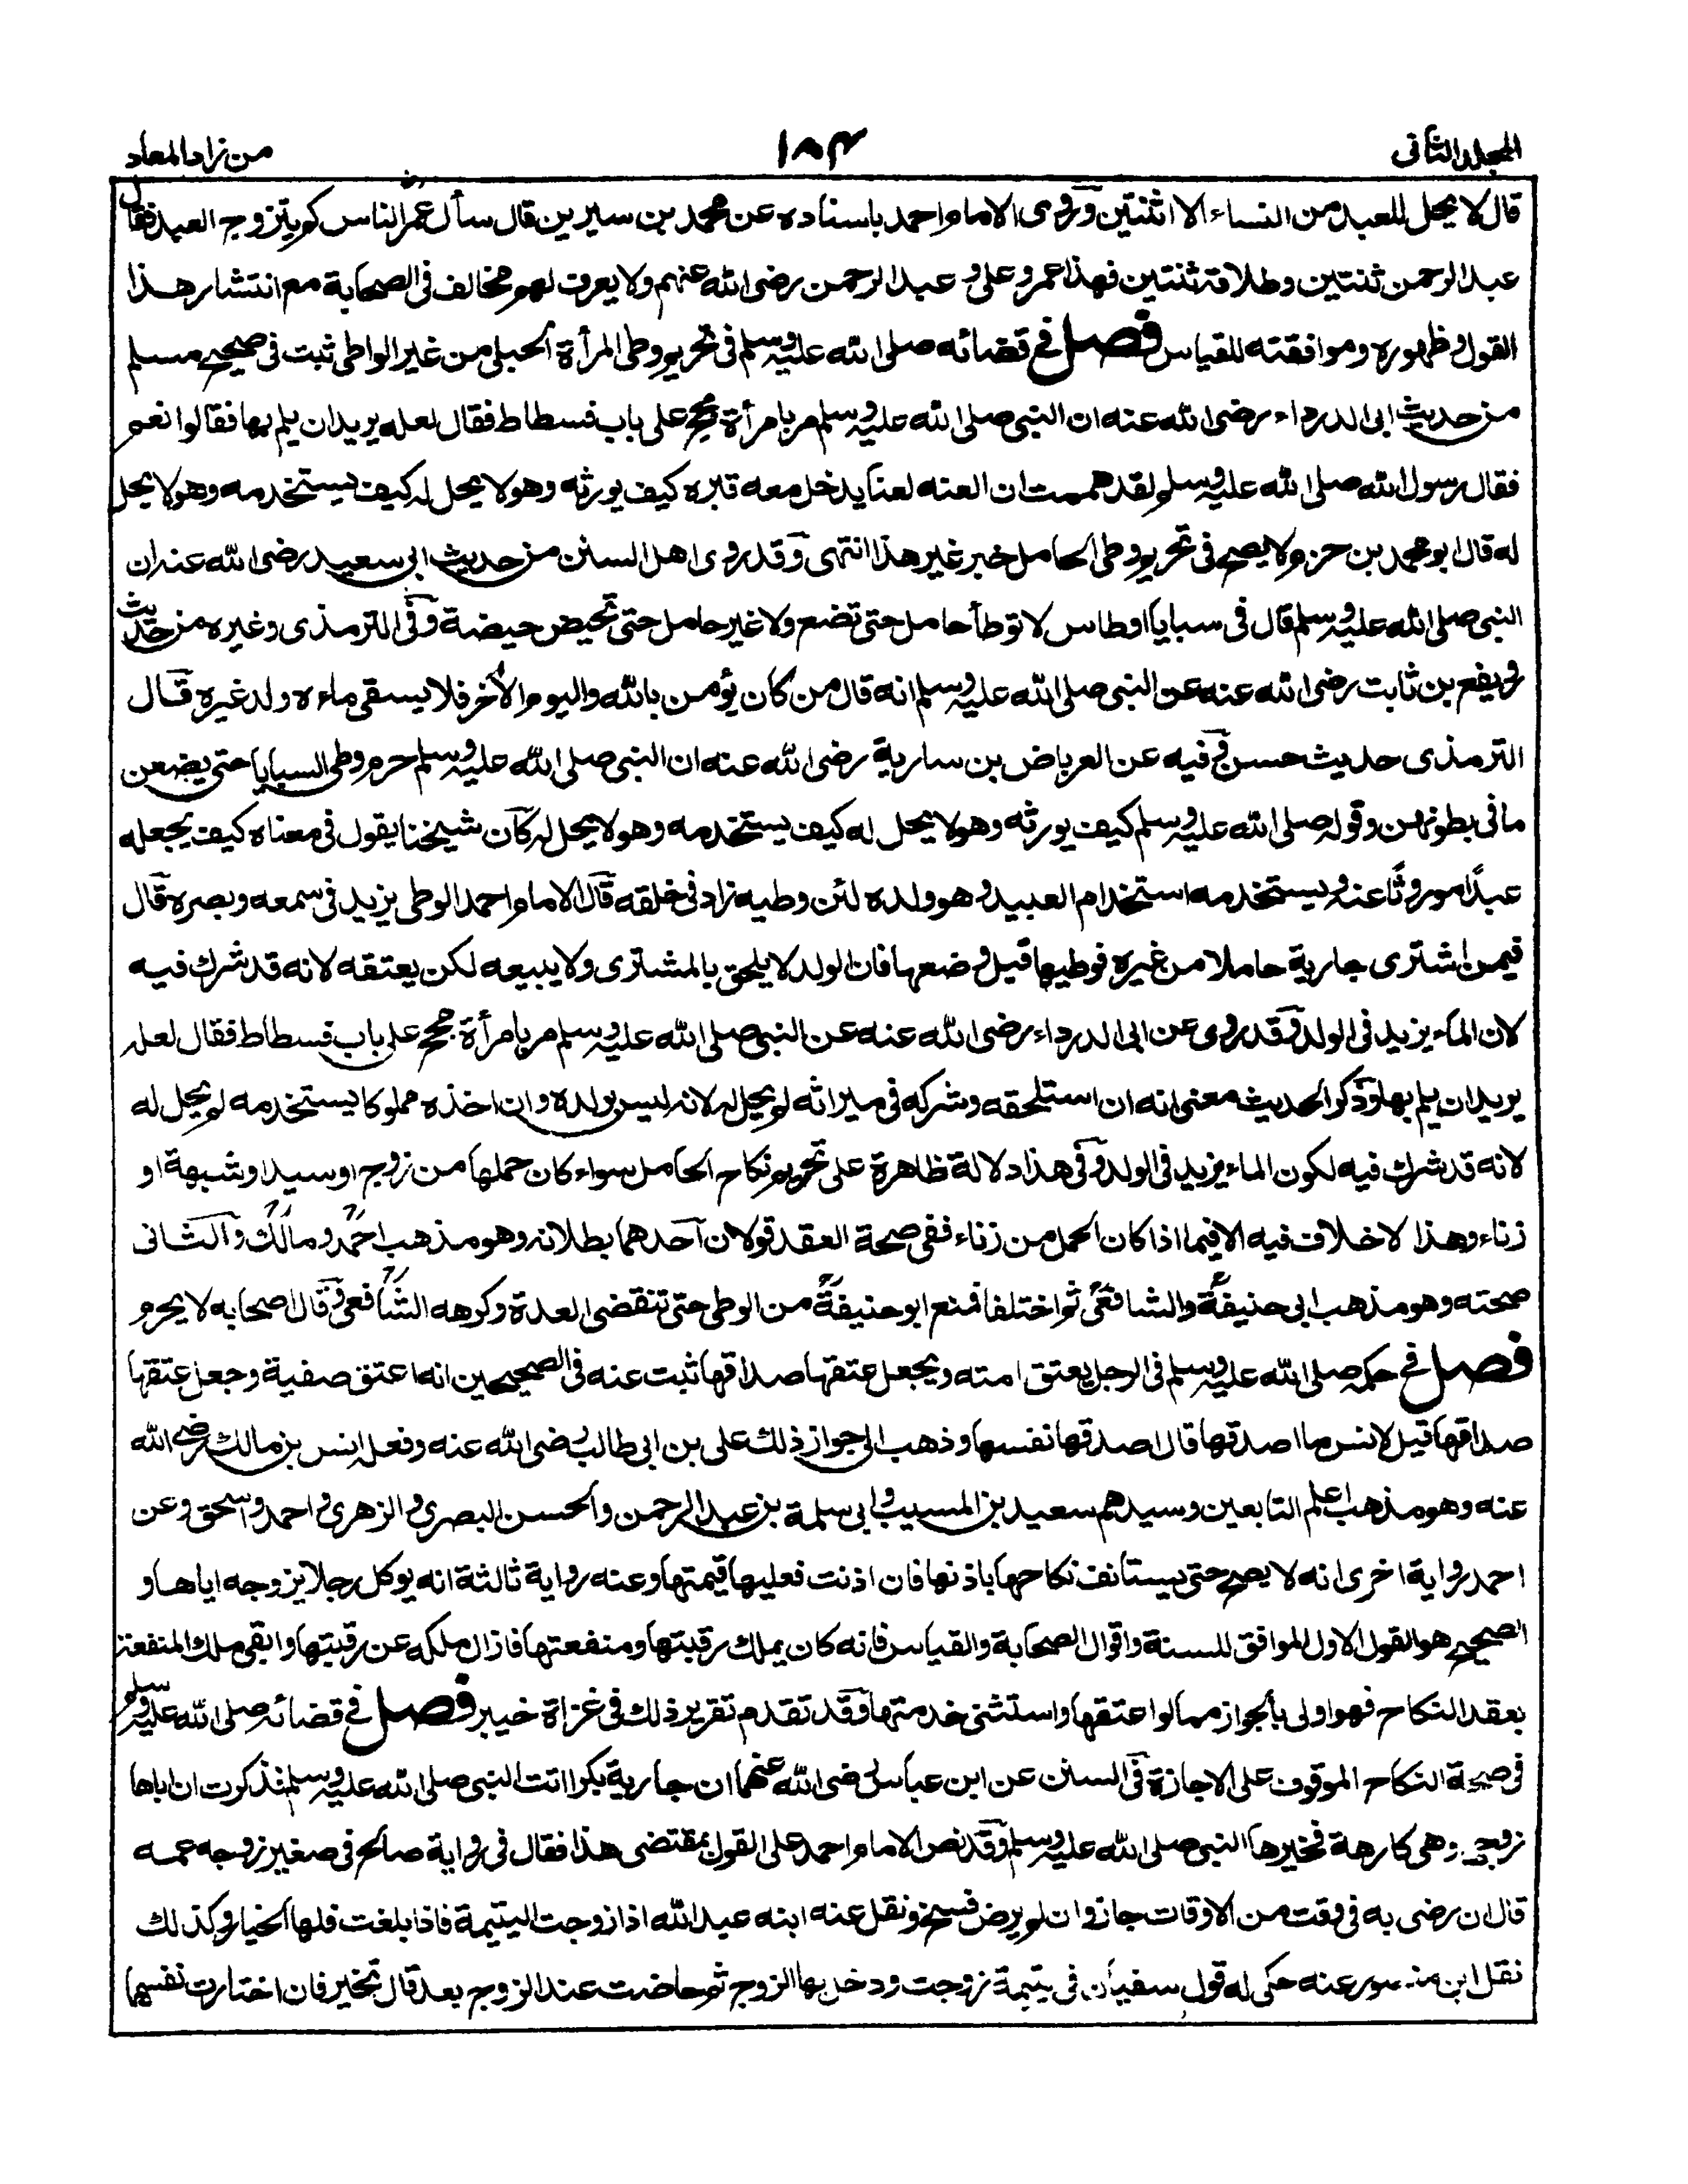 المجلد الثانى
١٨٤
من زاد المعاد
قال لا يحل للعبد من النساء الا اثنتين وروى الامام احمد باسناده عن محمد بن سيرين قال سأل عمر الناس كم يتزوج العبد فقال
عبد الرحمن ثنتين وطلاقه ثنتين فهذا عمر وعلى و عبد الرحمن رضى الله عنهم ولا يعرف لهم مخالف فى الصحابة مع انتشار هذا
القول وظهوره وموافقته للقياس فصل فى قضائه صلى الله عليه وسلم فى تحريم وطى المرأة الحبلى من غير الواطى ثبت فى صحيح مسلم
من حديث ابى الدرداء رضى الله عنه ان النبى صلى الله عليه وسلم مر بامرأة مجح على باب فسطاط فقال لعله يريد ان يلم بها فقالوا نعم
فقال رسول الله صلى الله عليه وسلم لقد هممت ان العنه لعنا يدخل معه قبره كيف يورثه وهو لا يحل له كيف يستخدمه وهو لا يحل
له قال ابو محمد بن حزم ولا يصح فى تحريم وطى الحامل خبر غير هذا انتهى وقد روى اهل السنن من حديث ابى سعيد رضى الله عنه ان
النبى صلى الله عليه وسلم قال فى سبايا اوطاس لا توطأ حامل حتى تضع ولا غير حامل حتى تحيض حيضة وفى الترمذى وغيره من حديث
رويفع بن ثابت رضى الله عنه عن النبى صلى الله عليه وسلم انه قال من كان يؤمن بالله واليوم الأخر فلا يسقى ماءه ولد غيره قال
الترمذى حديث حسن وفيه عن العرباض بن سارية رضى الله عنه ان النبى صلى الله عليه وسلم حرم وطى السبايا حتى يضعن
ما فى بطونهن وقوله صلى الله عليه وسلم كيف يورثه وهو لا يحل له كيف يستخدمه وهو لا يحل له كان شيخنا يقول فى معناه كيف يجعله
عبدًا موروثًا عنه ويستخدمه استخدام العبيد و هو ولده لئن وطيه زاد فى خلقه قال الامام احمد الوطى يزيد فى سمعه وبصره قال
فيمن اشترى جارية حاملا من غيره فوطيها قبل وضعها فان الولد لا يلحق بالمشترى ولا يبيعه لكن يعتقه لانه قد شرك فيه
لان الماء يزيد فى الولد وقد روى عن ابى الدرداء رضى الله عنه عن النبى صلى الله عليه وسلم مر بامرأة مجح على باب فسطاط فقال لعله
يريد ان يلم بها وذكر الحديث معنى انه ان استلحقه وشركه فى ميراثه لم يحل له لانه ليس بولده وان اخذه مملوكا يستخدمه لم يحل له
لانه قد شرك فيه لكون الماء يزيد فى الولد وفى هذا دلالة ظاهرة على تحريم نكاح الحامل سواء كان حملها من زوج او سيد او شبهة او
زناء وهذا لا خلاف فيه الا فيما اذا كان الحمل من زناء ففى صحة العقد قولان احدهما بطلانه وهو مذهب احمد ومالك والثانى
صحته وهو مذهب ابى حنيفة والشافعى ثم اختلفا فمنع ابو حنيفة من الوطى حتى تنقضى العدة وكرهه الشافعى وقال اصحابه لا يحرم
فصل فى حكمه صلى الله عليه وسلم فى الرجل يعتق امته ويجعل عتقها صداقها ثبت عنه فى الصحيحين انه اعتق صفية وجعل عتقها
صداقها قيل لانس ما اصدقها قال اصدقها نفسها وذهب الى جواز ذلك على بن ابى طالب رضى الله عنه وفعله انس بن مالك رضى الله
عنه وهو مذهب اعلم التابعين وسيدهم سعيد بن المسيب وابى سلمة بن عبد الرحمن والحسن البصرى والزهرى و احمد واسحق وعن
احمد رواية اخرى انه لا يصح حتى يستانف نكاحها باذنها فان اذنت فعليها قيمتها وعنه رواية ثالثة انه يوكل رجلا يزوجه اياها و
الصحيح هو القول الاول الموافق للسنة واقوال الصحابة والقياس فانه كان يملك رقبتها ومنفعتها فازال ملكه عن رقبتها وابقى ملك المنفعة
بعقد النكاح فهو اولى بالجواز مما لو اعتقها واستثنى خدمتها وقد تقدم تقرير ذلك فى غزاة خيبر فصل فى قضائه صلى الله عليه وسلم
فى صحة النكاح الموقوف على الاجازة فى السنن عن ابن عباس رضى الله عنهما ان جارية بكرا اتت النبى صلى الله عليه وسلم فذكرت ان اباها
زوجها وهى كارهة فخيرها النبى صلى الله عليه وسلم وقد نص الامام احمد على القول بمقتضى هذا فقال فى رواية صالح فى صغير زوجه عمه
قال ان رضى به فى وقت من الاوقات جاز وان لم يرض فسخ ونقل عنه ابنه عبد الله اذا زوجت اليتيمة فاذا بلغت فلها الخيار وكذلك
نقل ابن منصور عنه حكى له قول سفيان فى يتيمة زوجت ودخل بها الزوج ثم حاضت عند الزوج بعد قال تخير فان اختارت نفسها